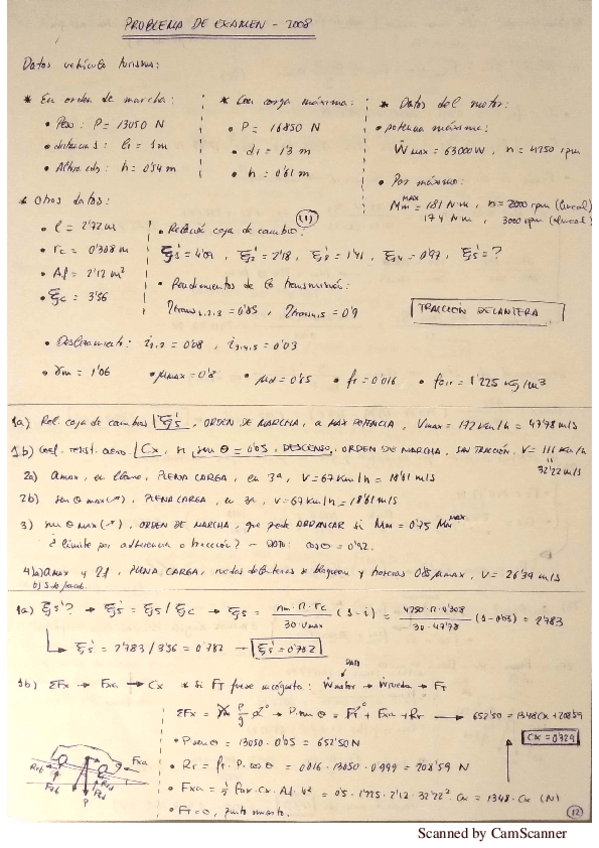 PROBLEMA DE EXAMEN - 2008
Datos vehículo turismo:
* En orden de marcha:
• Peso: P = 13050 N
• distancias: l1 = 1m
• Altura cdg: h = 0'54 m
* Con carga máxima:
• P = 16850 N
• d1 = 1'3 m
• h = 0'61 m
* Datos del motor:
• potencia máxima:
Ẇmax = 63000 W, n = 4750 rpm
• Par máximo:
Mm^MAX = 181 N·m, n = 2000 rpm (lineal)
174 N·m, 3000 rpm (lineal)
* Otros datos:
• l = 2'72 m
• rc = 0'308 m
• Af = 2'12 m²
• ξc = 3'56
(1)
• Relación caja de cambio:
ξ1' = 4'09, ξ2' = 2'18, ξ3' = 1'41, ξ4 = 0'97, ξ5' = ?
• Rendimientos de la transmisión:
ηtrans1,2,3 = 0'85, ηtrans4,5 = 0'9
TRACCIÓN DELANTERA
• Deslizamiento: i1,2 = 0'08, i3,4,5 = 0'03
• γm = 1'06 • μmax = 0'8 • μd = 0'65 • fr = 0'016 • ρair = 1'225 kg/m³
1a) Rel. caja de cambios ξ5', ORDEN DE MARCHA, a MAX POTENCIA, Vmax = 172 km/h = 47'78 m/s
1b) Coef. resist. aero Cx, sen θ = 0'05, DESCENSO, ORDEN DE MARCHA, SIN TRACCIÓN, V = 116 km/h
32'22 m/s
2a) amax, en llano, PLENA CARGA, en 3ª, V = 67 km/h = 18'61 m/s
2b) sen θ max, PLENA CARGA, en 3ª, V = 67 km/h = 18'61 m/s
3) sen θ max, ORDEN DE MARCHA, que puede ARRANCAR si Mm = 0'75 Mm^MAX
¿límite por adherencia o tracción? - DATO: cos θ = 0'92.
4) a) amax y, PLENA CARGA, ruedas delanteras se bloquean y traseras 0'85 μmax, V = 26'39 m/s
b)
1a) ξ5'? → ξ5' = ξ5/ξc → ξ5 = nm·π·rc / 30·Vmax (1-i) = 4750·π·0'308 / 30·47'78 (1-0'03) = 2'783
ξ5' = 2'783/3'56 = 0'782 → ξ5' = 0'782
DATO
1b) ΣFx → Fxa → Cx * Si FT fuese incógnita: Ẇmotor → Ẇrueda → FT
ΣFx = γm P/g a⁰ → P·sen θ = FT⁰ + Fxa + Rr → 652'50 = 1348Cx + 208'59
• P sen θ = 13050·0'05 = 652'50 N
Cx = 0'329
• Rr = fr·P·cos θ = 0'016·13050·0'999 = 208'59 N
• Fxa = ½ ρair·Cx·Af·V² = 0'5·1'225·2'12·32'22²·Cx = 1348·Cx (N)
• FT = 0, punto muerto.
Fxa
P
(12)
Scanned by CamScanner